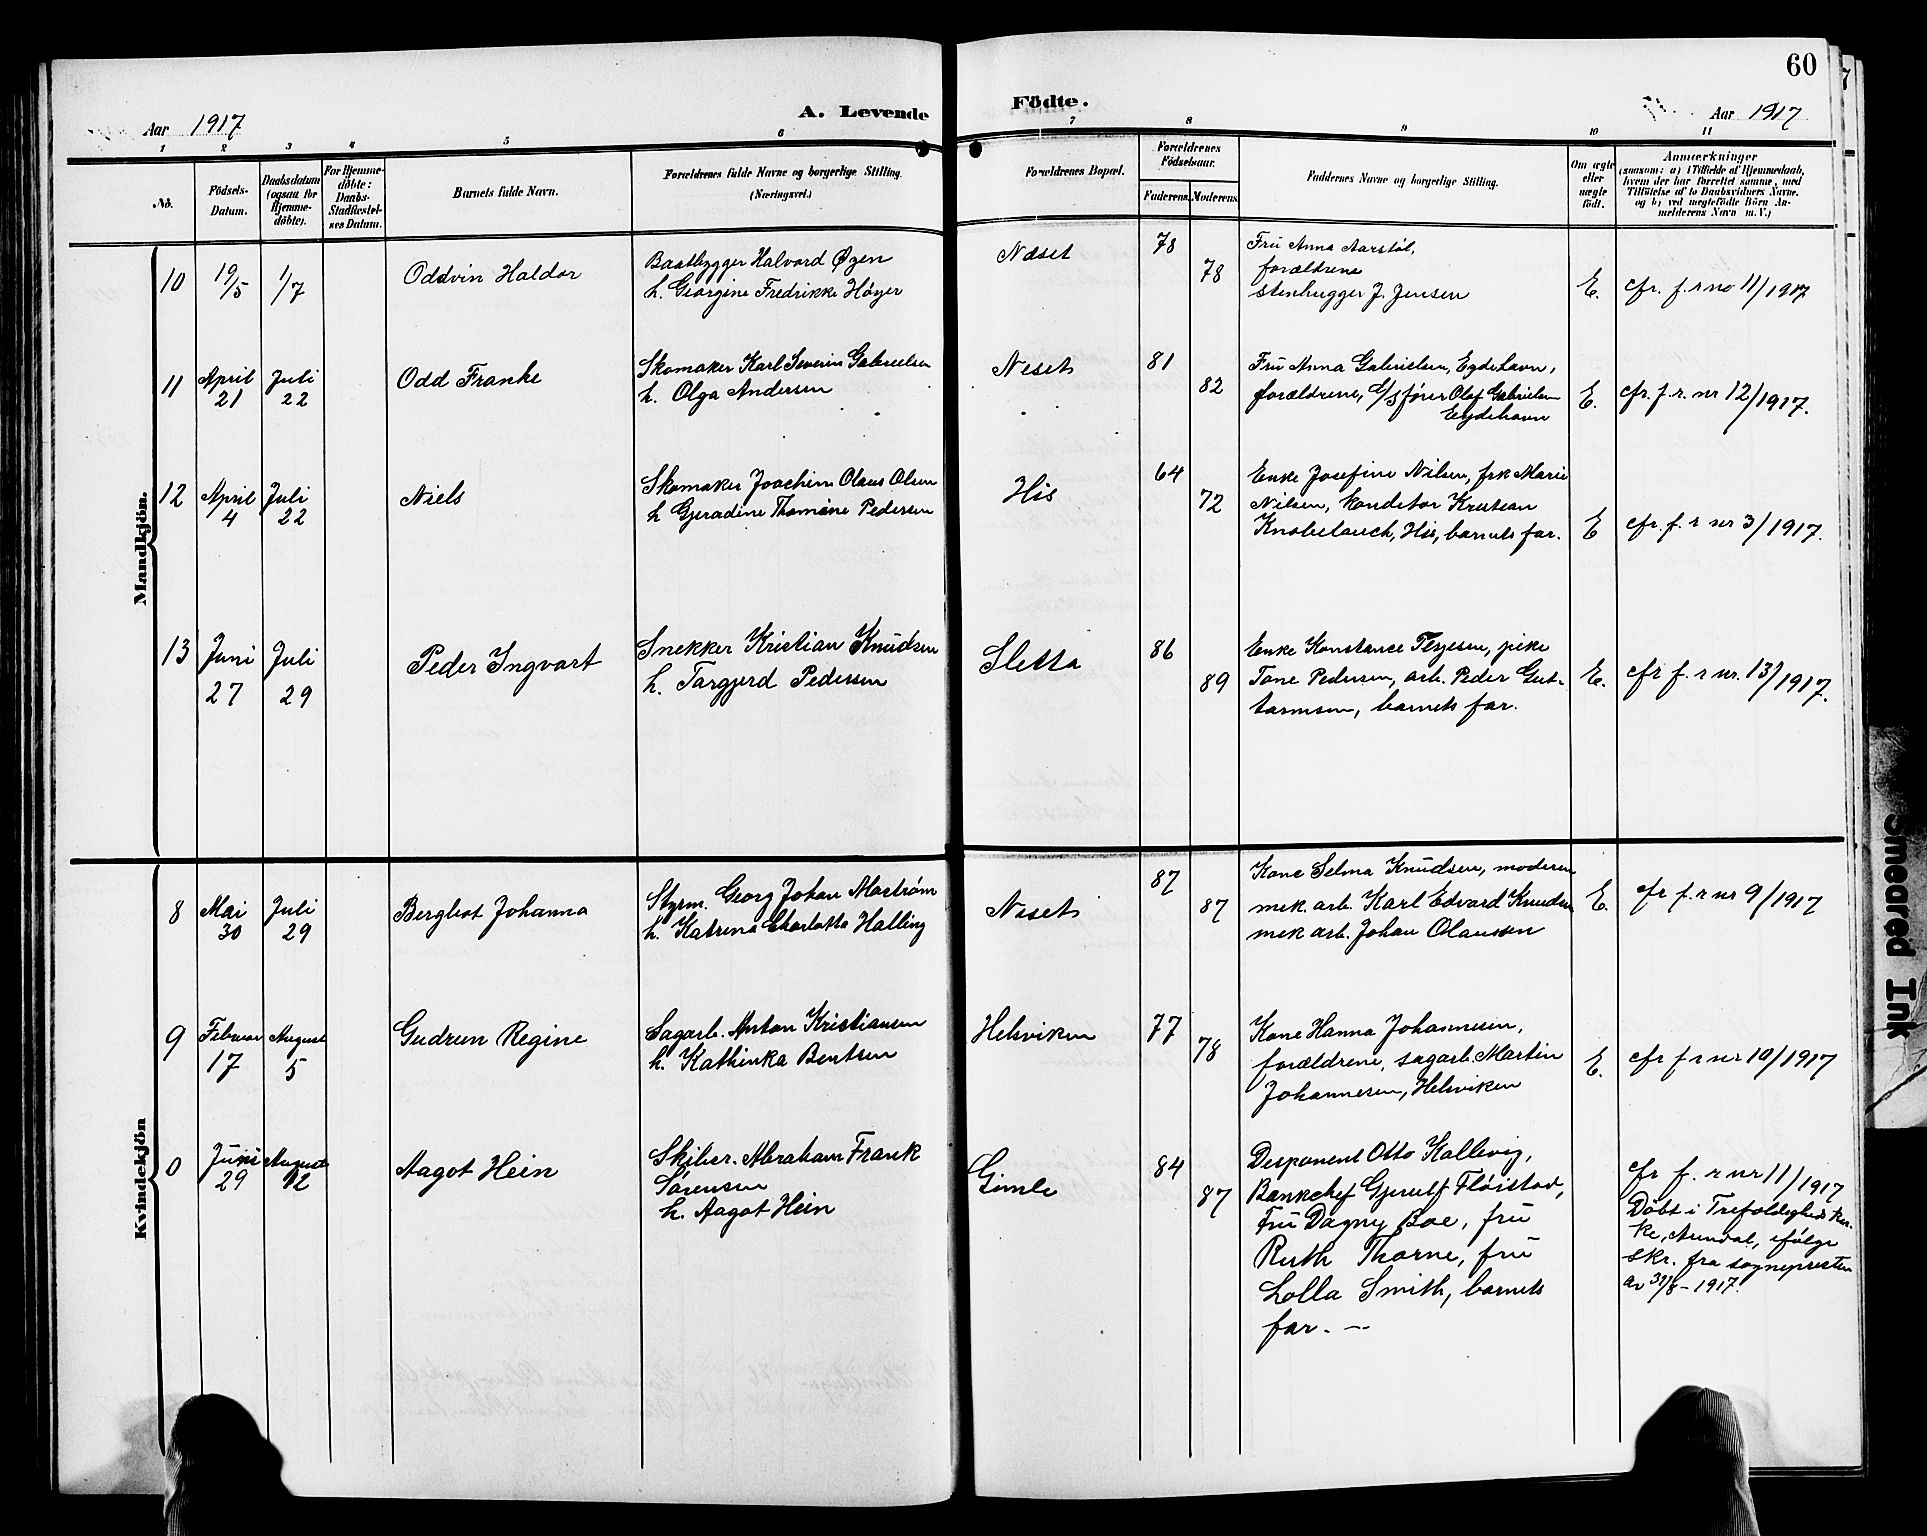 60
A. Levende Födte.
Aar 1917
Aar 1917
1 2 3 4 5 6 7 8 9 10 11
No.
Födsels-
Datum.
Daabsdatum
(ogsaa for
Hjemme-
döbte).
For Hjemme-
döbte:
Daabs-
Stadfæstel-
ses Datum.
Barnets fulde Navn.
Forældrenes fulde Navne og borgerlige Stilling.
(Næringsvei.)
Forældrenes Bopæl.
Forældrenes
Födselsaar.
Faderens. Moderens.
Faddernes Navne og borgerlige Stilling.
Om ægte
eller
uægte
födt.
Anmærkninger
(saasom: a) i Tilfælde af Hjemmedaab,
hvem der har forrettet samme, med
Tilföielse af to Daabsvidners Navne.
og b) ved uegtefödte Börn An-
melderens Navn m. V.)
Mandkjön.
10 19/5 1/7 Oddvin Haldor
Baatbygger Halvord Øgen
h. Georgine Fredrikke Høyer
Næset 78 78
Fru Anna Aarstøl,
forældrene
stenhugger J. Jensen
E. cfr. f. r no 11/1917
11 April 21 Juli 22 Odd Franke
Skomaker Karl Severin Gabrielsen
h. Olga Andersen
Neset 81 82
Fru Anna Gabrielsen, Eydehavn,
forældrene, G/S fører Olaf Gabrielsen
Eydehavn
E. cfr. f. r. nr 12/1917.
12 April 4 Juli 22 Niels
Skomaker Joachim Olaus Olsen
h Gjeradine Thomine Pedersen
His 64 72
Enke Josefine Nilsen, frk Marie
Nilsen, konditor Kristian
Knobelauch, His, barnets far.
E cfr. f. r nr 3/1917.
13 Juni 27 Juli 29 Peder Ingvart
Snekker Kristian Knudsen
h. Targjerd Pedersen
Sletta 86 89
Enke Konstance Terjesen, pike
Tone Pedersen, arb. Peder Gut-
tormsen, barnets far.
E. cfr f. r nr. 13/1917.
Kvindekjön
8 Mai 30 Juli 29 Bergliot Johanna
Styrm. Georg Johan Mostrøm
h. Katrina Charlotta Halling
Neset 87 87
Kone Selma Knudsen, moderen
mek. arb. Karl Edvard Knudsen
mek arb. Johan Olaussen
E. cfr f. r nr 9/1917
9 Februar 17 August 5 Gudrun Regine
Sagarb. Anton Kristiansen
h. Kathinka Bentsen
Helsviken 77 78
Kone Hanna Johannesen,
forældrene, sagarb. Martin
Johannesen, Helsviken
E. cfr f r nr 10/1917
0 Juni 29 August 12 Aagot Hein
Skibsr. Abraham Frank
Sørensen
h. Aagot Hein
Gimle 84 87
Disponent Otto Kallevig,
Bankchef Gjerulf Fløistad,
Fru Dagny Boe, fru
Ruth Thorne, fru
Lolla Smith, barnets
far. —
cfr f. r nr 11/1917
Döbt i Trefoldigheds kir-
ke, Arendal, ifølge
skr. fra sognepresten
av 31/8-1917.
Smeared Ink